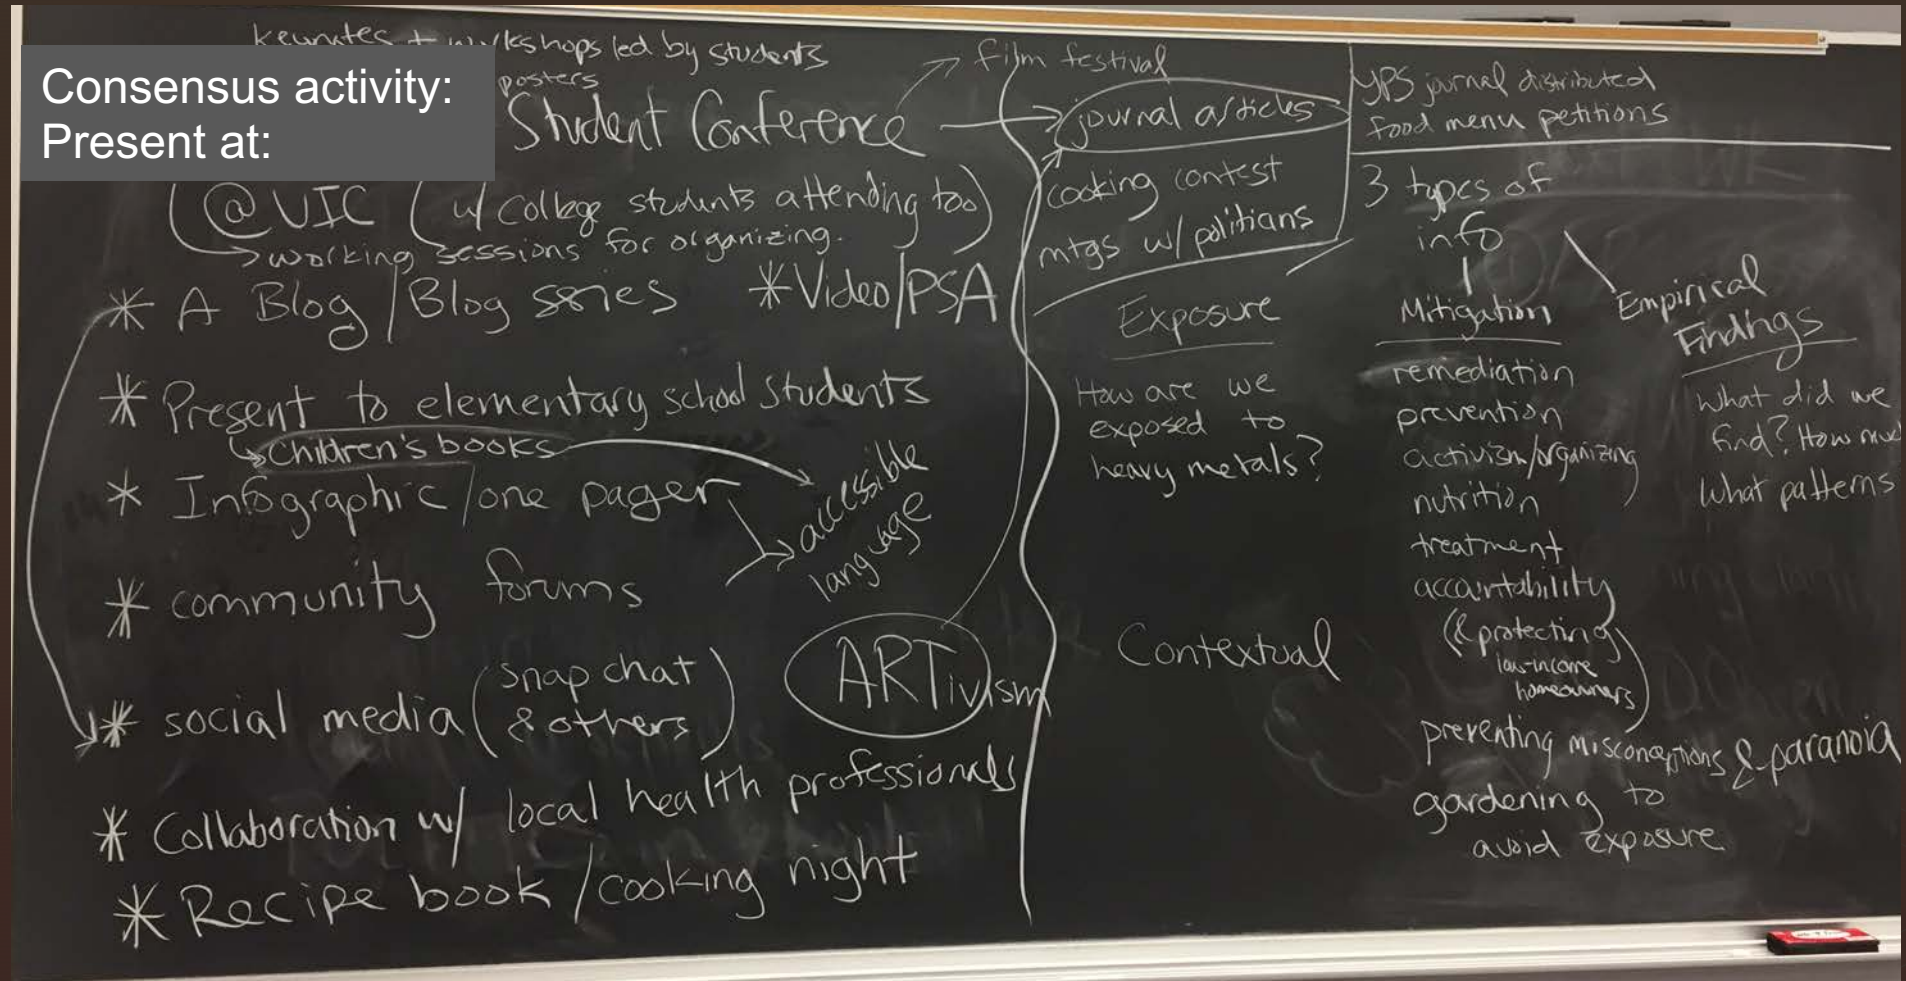 Consensus activity:
Present at:
keynotes + workshops led by students
posters
Student Conference
(@UIC (w/ college students attending too)
working sessions for organizing.
* A Blog/Blog series *Video/PSA
* Present to elementary school students
Children's books
* Infographic/one pager
accessible
language
* community forums
* social media (snap chat
& others)
ARTivism
* Collaboration w/ local health professionals
* Recipe book/cooking night
film festival
journal articles
cooking contest
mtgs w/ politians
YPS journal distributed
food menu petitions
3 types of
info
Exposure
How are we
exposed to
heavy metals?
Contextual
Mitigation
remediation
prevention
activism/organizing
nutrition
treatment
accountability
(& protecting
low-income
homeowners)
preventing misconceptions & paranoia
gardening to
avoid exposure
Empirical
Findings
What did we
find? How
What patterns